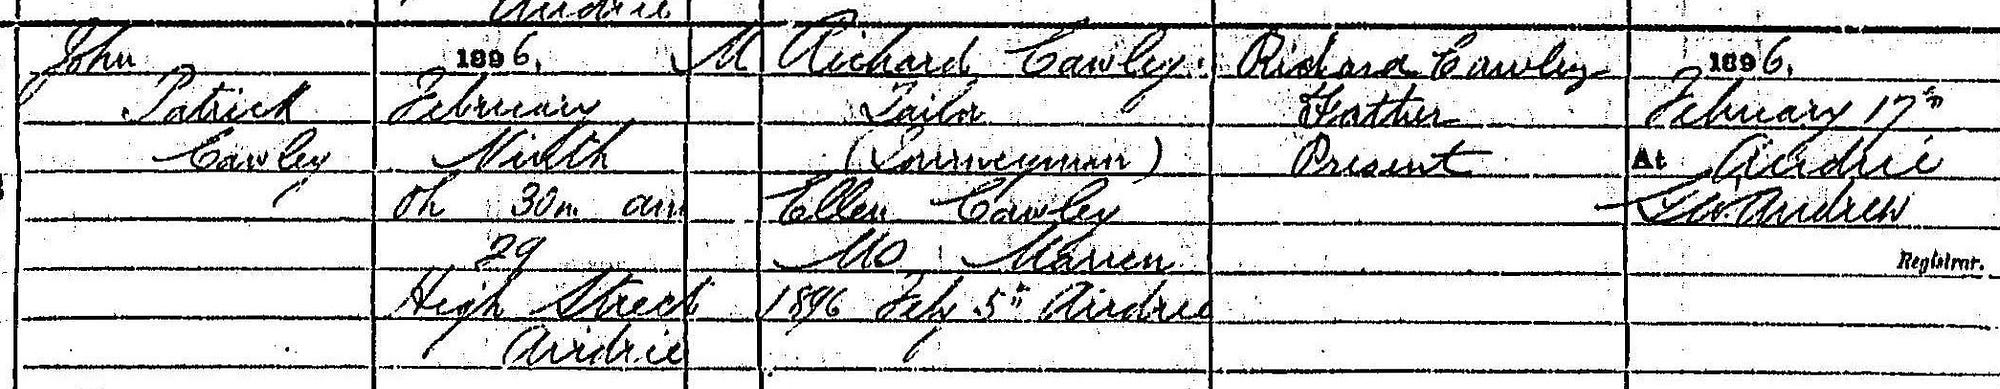 Airdrie
John
Patrick
Cawley
1896.
February
Ninth
0h 30m am
29
High Street
Airdrie
M
Richard Cawley.
Tailor
(Journeyman)
Ellen Cawley
MS Marren
1896 Feby 5th Airdrie
Richard Cawley
Father
Present
1896.
February 17th
At Airdrie
Andrew
Registrar.